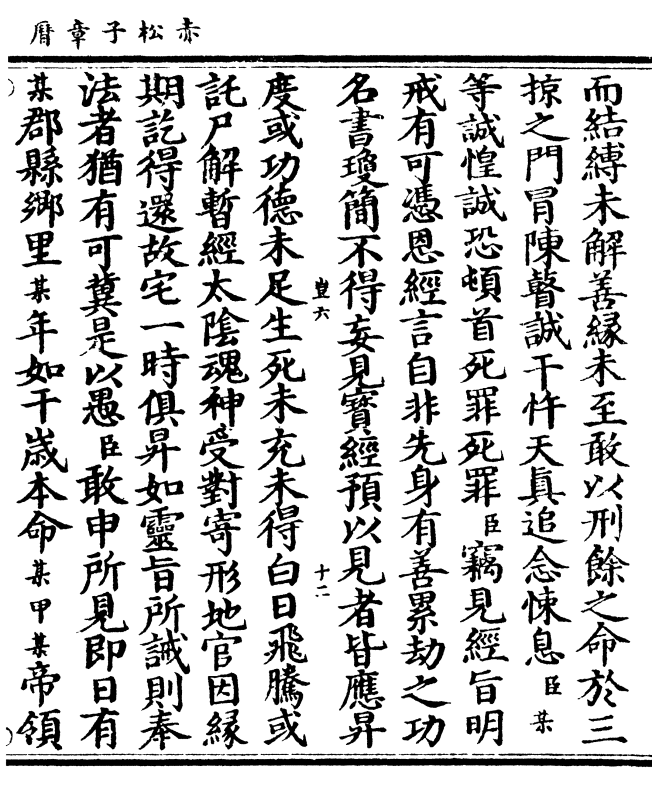 赤松子章曆
而結縛未解善緣未至敢以刑餘之命於三
掠之門冒陳瞽誠干忤天眞追念悚息臣某
等誠惶誠恐頓首死罪死罪臣竊見經旨明
戒有可憑恩經言自非先身有善累劫之功
名書瓊簡不得妄見寶經預以見者皆應昇
豈六 十二
度或功德未足生死未充未得白日飛騰或
託尸解暫經太陰魂神受對寄形地官因緣
期訖得還故宅一時俱昇如靈旨所誡則奉
法者猶有可冀是以愚臣敢申所見即日有
某郡縣鄉里某年如干歲本命某甲某帝領